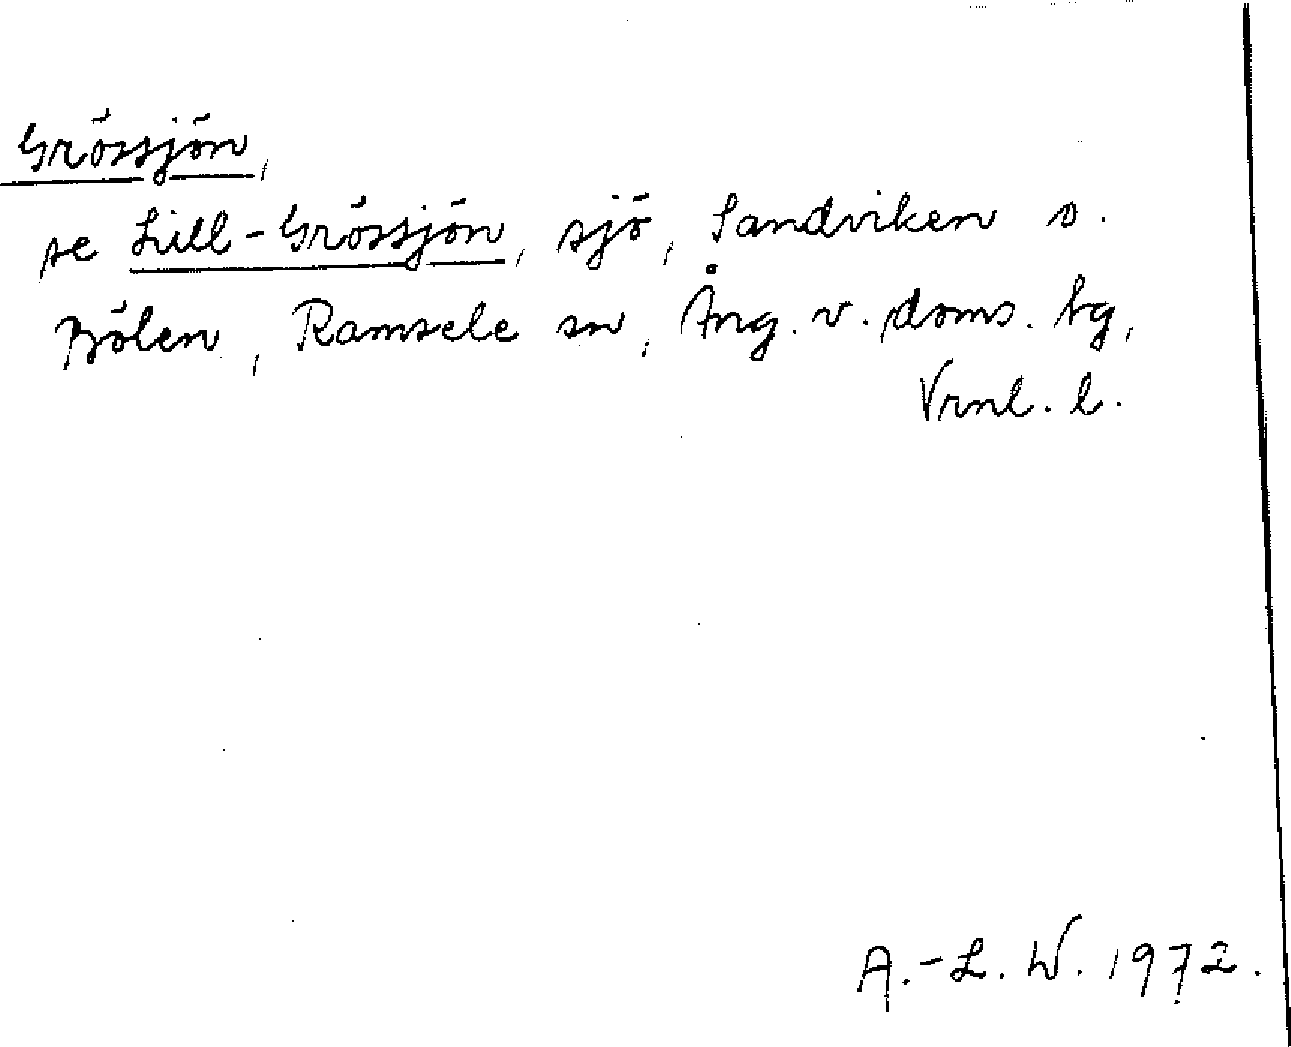 Grössjön,
se Lill-Grössjön, sjö, Sandviken o.
Bölen, Ramsele sn, Ång. v. doms. tg,
Vrnl. l.
A.-L. W. 1972.